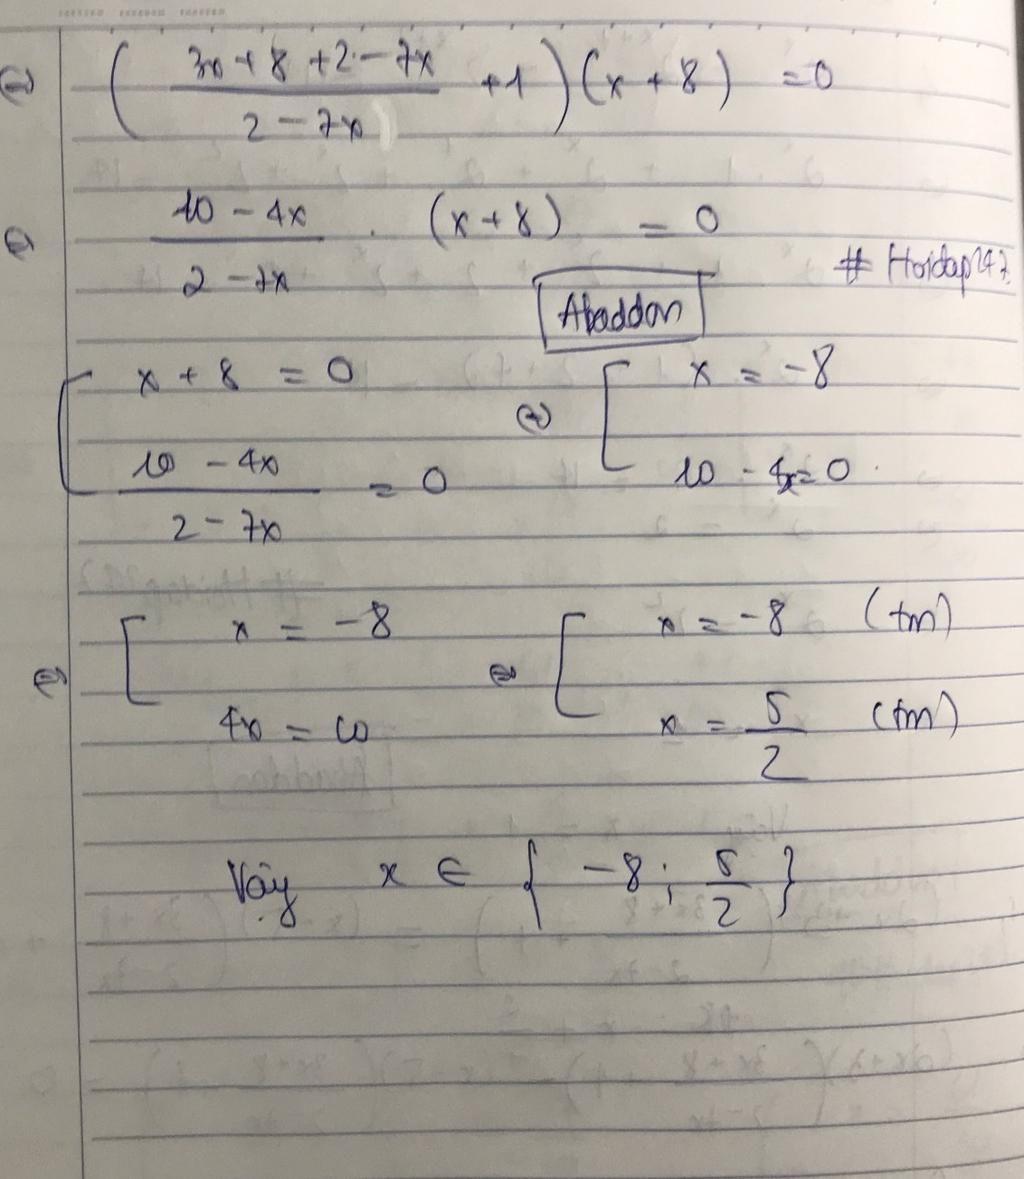 ⇔ ( (3x + 8 + 2 - 7x) / (2 - 7x) + 1 ) (x + 8) = 0
⇔ (10 - 4x) / (2 - 7x) . (x + 8) = 0
# Hoidap247
Abaddon
[ x + 8 = 0 ⇔ [ x = -8
(10 - 4x) / (2 - 7x) = 0 10 - 4x = 0
⇔ [ x = -8 ⇔ [ x = -8 (tm)
4x = 10 x = 5/2 (tm)
Vậy x ∈ { -8 ; 5/2 }